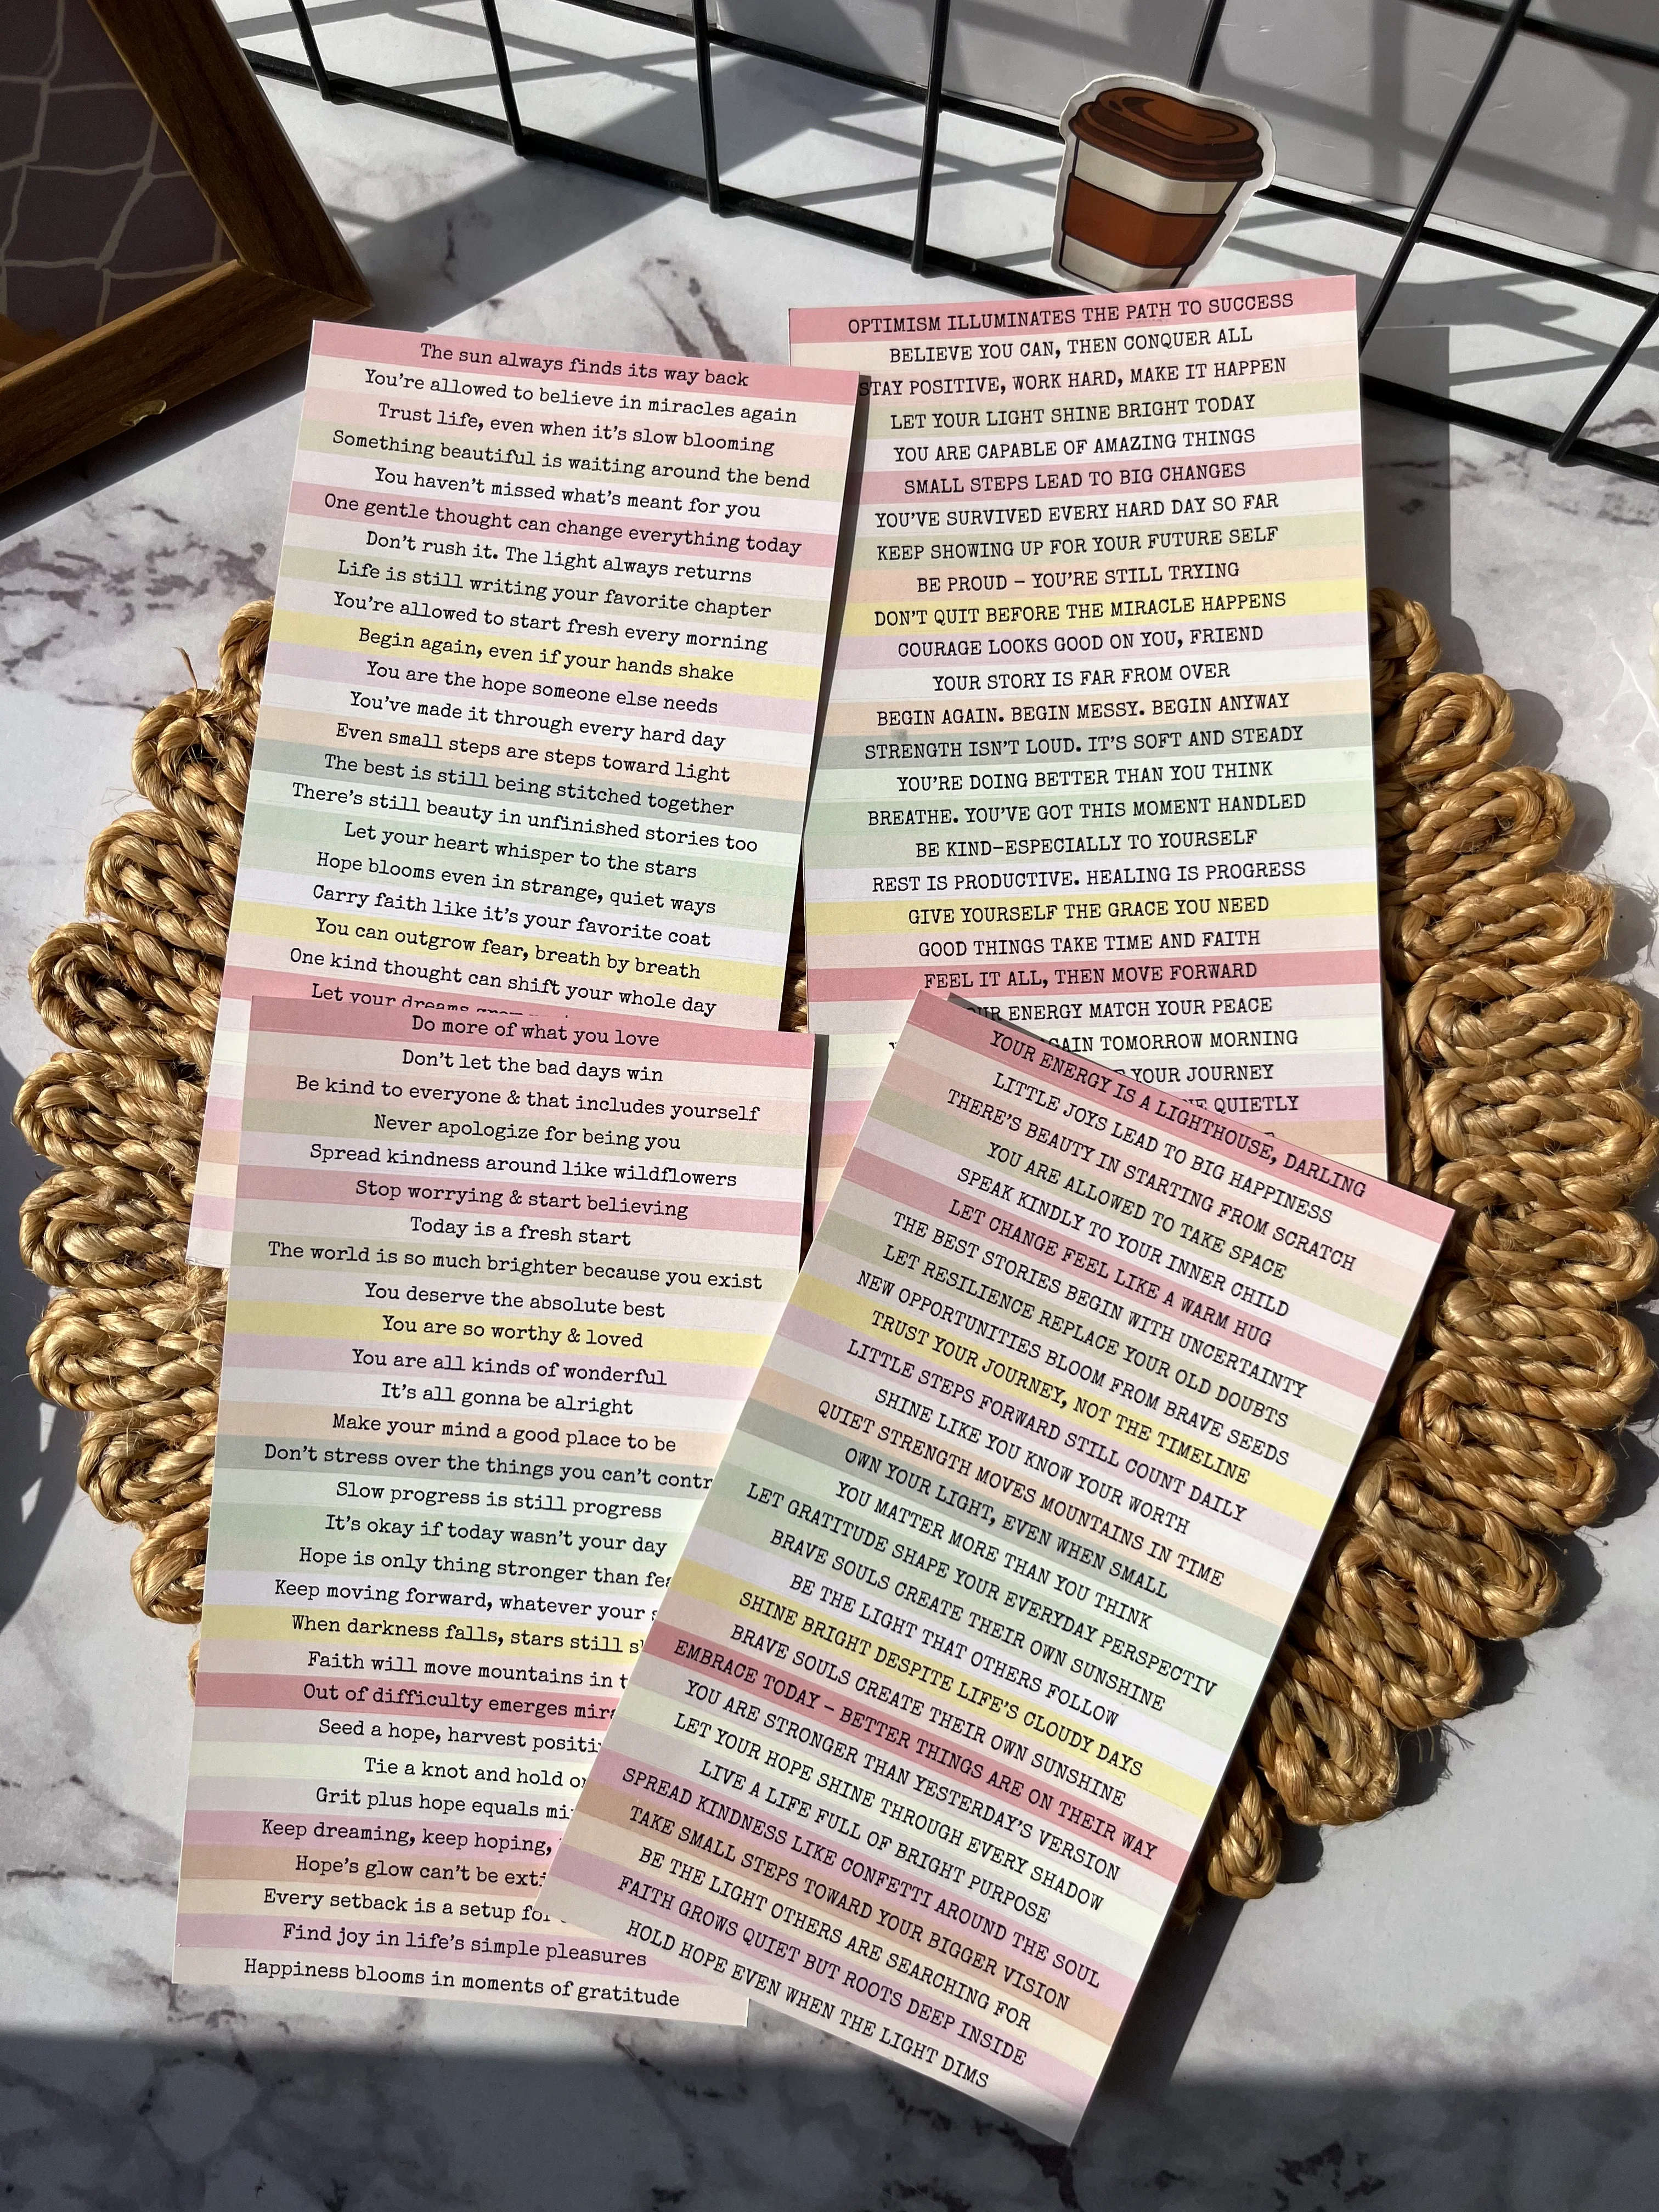 The sun always finds its way back
You're allowed to believe in miracles again
Trust life, even when it's slow blooming
Something beautiful is waiting around the bend
You haven't missed what's meant for you
One gentle thought can change everything today
Don't rush it. The light always returns
Life is still writing your favorite chapter
You're allowed to start fresh every morning
Begin again, even if your hands shake
You are the hope someone else needs
You've made it through every hard day
Even small steps are steps toward light
The best is still being stitched together
There's still beauty in unfinished stories too
Let your heart whisper to the stars
Hope blooms even in strange, quiet ways
Carry faith like it's your favorite coat
You can outgrow fear, breath by breath
One kind thought can shift your whole day
Let your dreams
OPTIMISM ILLUMINATES THE PATH TO SUCCESS
BELIEVE YOU CAN, THEN CONQUER ALL
STAY POSITIVE, WORK HARD, MAKE IT HAPPEN
LET YOUR LIGHT SHINE BRIGHT TODAY
YOU ARE CAPABLE OF AMAZING THINGS
SMALL STEPS LEAD TO BIG CHANGES
YOU'VE SURVIVED EVERY HARD DAY SO FAR
KEEP SHOWING UP FOR YOUR FUTURE SELF
BE PROUD – YOU'RE STILL TRYING
DON'T QUIT BEFORE THE MIRACLE HAPPENS
COURAGE LOOKS GOOD ON YOU, FRIEND
YOUR STORY IS FAR FROM OVER
BEGIN AGAIN. BEGIN MESSY. BEGIN ANYWAY
STRENGTH ISN'T LOUD. IT'S SOFT AND STEADY
YOU'RE DOING BETTER THAN YOU THINK
BREATHE. YOU'VE GOT THIS MOMENT HANDLED
BE KIND–ESPECIALLY TO YOURSELF
REST IS PRODUCTIVE. HEALING IS PROGRESS
GIVE YOURSELF THE GRACE YOU NEED
GOOD THINGS TAKE TIME AND FAITH
FEEL IT ALL, THEN MOVE FORWARD
ENERGY MATCH YOUR PEACE
TOMORROW MORNING
YOUR JOURNEY
QUIETLY
Do more of what you love
Don't let the bad days win
Be kind to everyone & that includes yourself
Never apologize for being you
Spread kindness around like wildflowers
Stop worrying & start believing
Today is a fresh start
The world is so much brighter because you exist
You deserve the absolute best
You are so worthy & loved
You are all kinds of wonderful
It's all gonna be alright
Make your mind a good place to be
Don't stress over the things you can't contr
Slow progress is still progress
It's okay if today wasn't your day
Hope is only thing stronger than fea
Keep moving forward, whatever your
When darkness falls, stars still
Faith will move mountains in
Out of difficulty emerges mira
Seed a hope, harvest positi
Tie a knot and hold
Grit plus hope equals mi
Keep dreaming, keep hoping,
Hope's glow can't be exti
Every setback is a setup for
Find joy in life's simple pleasures
Happiness blooms in moments of gratitude
YOUR ENERGY IS A LIGHTHOUSE, DARLING
LITTLE JOYS LEAD TO BIG HAPPINESS
THERE'S BEAUTY IN STARTING FROM SCRATCH
YOU ARE ALLOWED TO TAKE SPACE
SPEAK KINDLY TO YOUR INNER CHILD
LET CHANGE FEEL LIKE A WARM HUG
THE BEST STORIES BEGIN WITH UNCERTAINTY
LET RESILIENCE REPLACE YOUR OLD DOUBTS
NEW OPPORTUNITIES BLOOM FROM BRAVE SEEDS
TRUST YOUR JOURNEY, NOT THE TIMELINE
LITTLE STEPS FORWARD STILL COUNT DAILY
SHINE LIKE YOU KNOW YOUR WORTH
QUIET STRENGTH MOVES MOUNTAINS IN TIME
OWN YOUR LIGHT, EVEN WHEN SMALL
YOU MATTER MORE THAN YOU THINK
LET GRATITUDE SHAPE YOUR EVERYDAY PERSPECTIV
BRAVE SOULS CREATE THEIR OWN SUNSHINE
BE THE LIGHT THAT OTHERS FOLLOW
SHINE BRIGHT DESPITE LIFE'S CLOUDY DAYS
BRAVE SOULS CREATE THEIR OWN SUNSHINE
EMBRACE TODAY – BETTER THINGS ARE ON THEIR WAY
YOU ARE STRONGER THAN YESTERDAY'S VERSION
LET YOUR HOPE SHINE THROUGH EVERY SHADOW
LIVE A LIFE FULL OF BRIGHT PURPOSE
SPREAD KINDNESS LIKE CONFETTI AROUND THE SOUL
TAKE SMALL STEPS TOWARD YOUR BIGGER VISION
BE THE LIGHT OTHERS ARE SEARCHING FOR
FAITH GROWS QUIET BUT ROOTS DEEP INSIDE
HOLD HOPE EVEN WHEN THE LIGHT DIMS